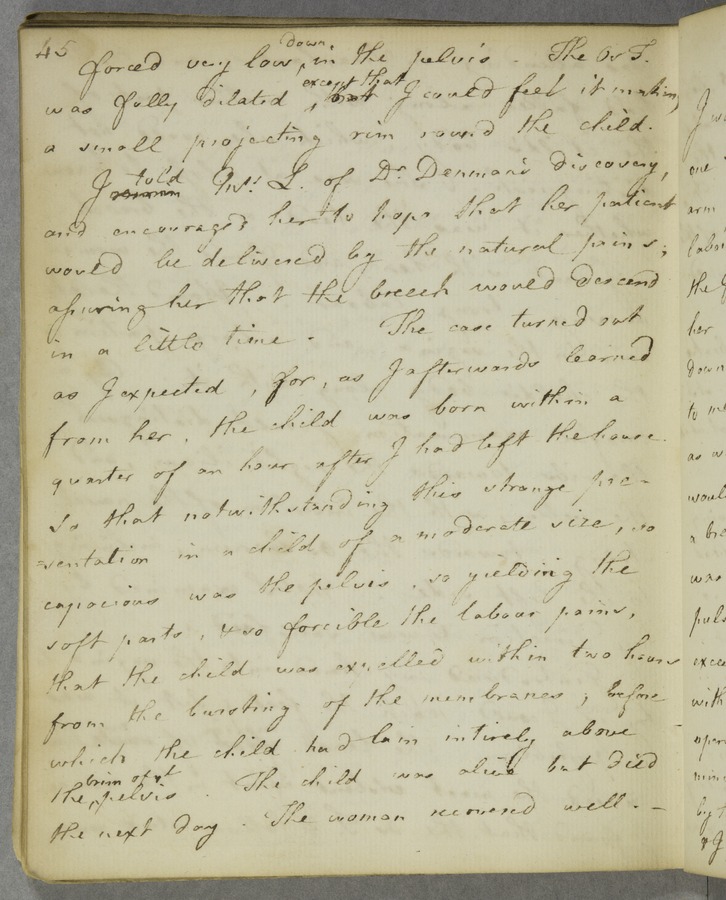 45
forced very low down in the pelvis. The Os T.
was fully dilated except that but I could feel it making
a small projecting rim round the child.
I told Mrs. L. of Dr Denman's discovery,
and encouraged her to hope that her patient
would be delivered by the natural pains;
assuring her that the breech would descend
in a little time. The case turned out
as I expected, for, as I afterwards learned
from her, the child was born within a
quarter of an hour after I had left the house.
So that notwithstanding this strange pre-
=sentation in a child of a moderate size, so
capacious was the pelvis, so yielding the
soft parts, & so forcible the labour pains,
that the child was expelled within two hours
from the bursting of the membranes; before
which the child had lain intirely above
the brim of ye pelvis. The child was alive but died
the next day. The woman recovered well. —
I w
one
arm
labo
the
her
down
to m
as w
woul
a bre
was
pelv
exce
with
oper
min
by t